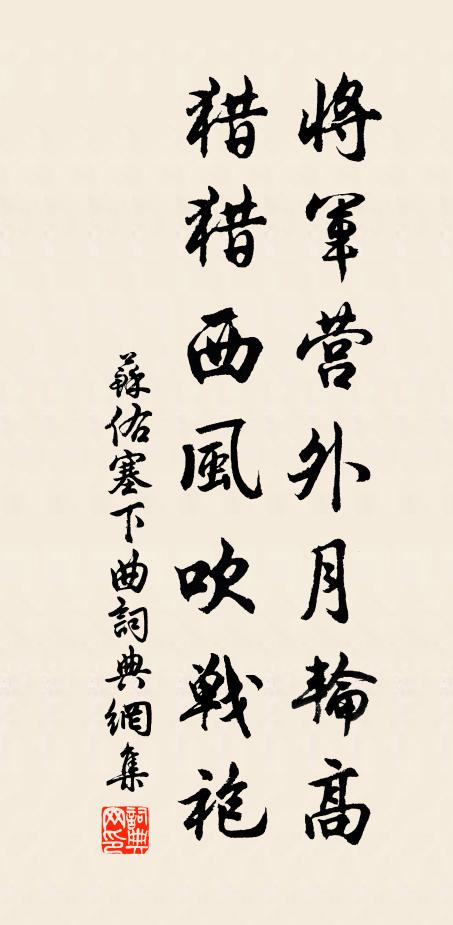 将軍营外月輪高
猎猎西風吹戦袍
蘇佑塞下曲詞典網集
詞典网印